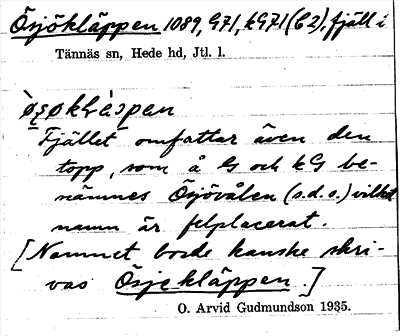 Ösjökläppen 1089, G71, kG71 (C2), fjäll i
Tännäs sn, Hede hd, Jtl. l.
Fjället omfattar även den
topp, som å G och kG be-
nämnes Ösjövålen (s.d.o.) vilket
namn är felplacerat.
[Namnet borde kanske skri-
vas Ösjekläppen.]
O. Arvid Gudmundson 1935.